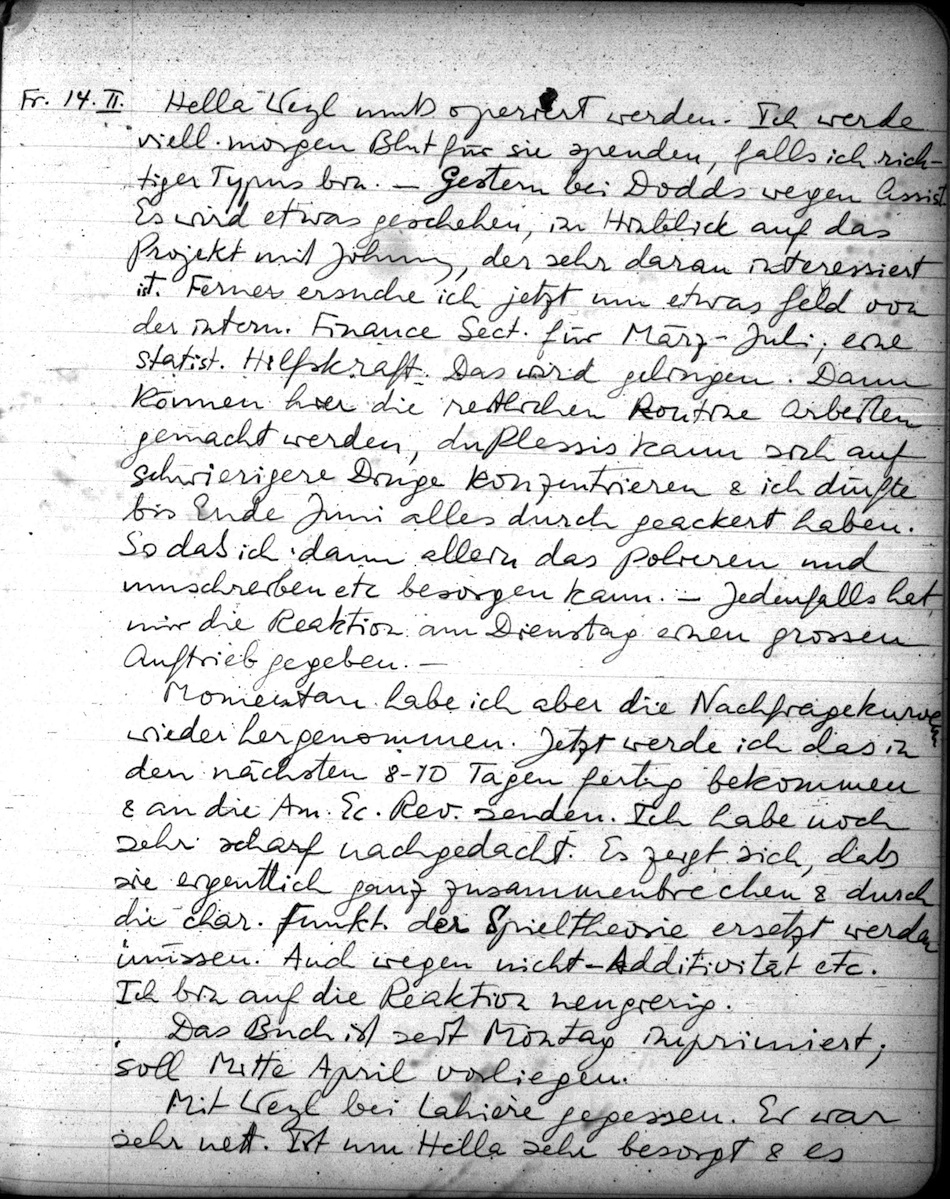 Fr. 14. II. Hella Weyl muß operiert werden. Ich werde
viell. morgen Blut für sie spenden, falls ich rich-
tiger Typus bin. – Gestern bei Dodds wegen Assist.
Es wird etwas geschehen, in Hinblick auf das
Projekt mit Johnny, der sehr daran interessiert
ist. Ferner ersuche ich jetzt um etwas Geld von
der intern. Finance Sect. für März – Juli; eine
statist. Hilfskraft. Das wird gelingen. Dann
können hier die restlichen Routine Arbeiten
gemacht werden, duPlessis kann sich auf
schwierigere Dinge konzentrieren & ich dürfte
bis Ende Juni alles durch geackert haben.
So daß ich dann allein das polieren und
umschreiben etc besorgen kann. – Jedenfalls hat
mir die Reaktion am Dienstag einen grossen
Auftrieb gegeben. –
Momentan habe ich aber die Nachfragekurve
wieder hergenommen. Jetzt werde ich das in
den nächsten 8-10 Tagen fertig bekommen
& an die Am. Ec. Rev. senden. Ich habe noch
sehr scharf nachgedacht. Es zeigt sich, daß
sie eigentlich ganz zusammenbrechen & durch
die char. Funkt. der Spieltheorie ersetzt werden
müssen. Auch wegen nicht-Additivität etc.
Ich bin auf die Reaktion neugierig.
Das Buch ist seit Montag imprimiert;
soll Mitte April vorliegen.
Mit Weyl bei Lahière gegessen. Er war
sehr nett. Ist um Hella sehr besorgt & es